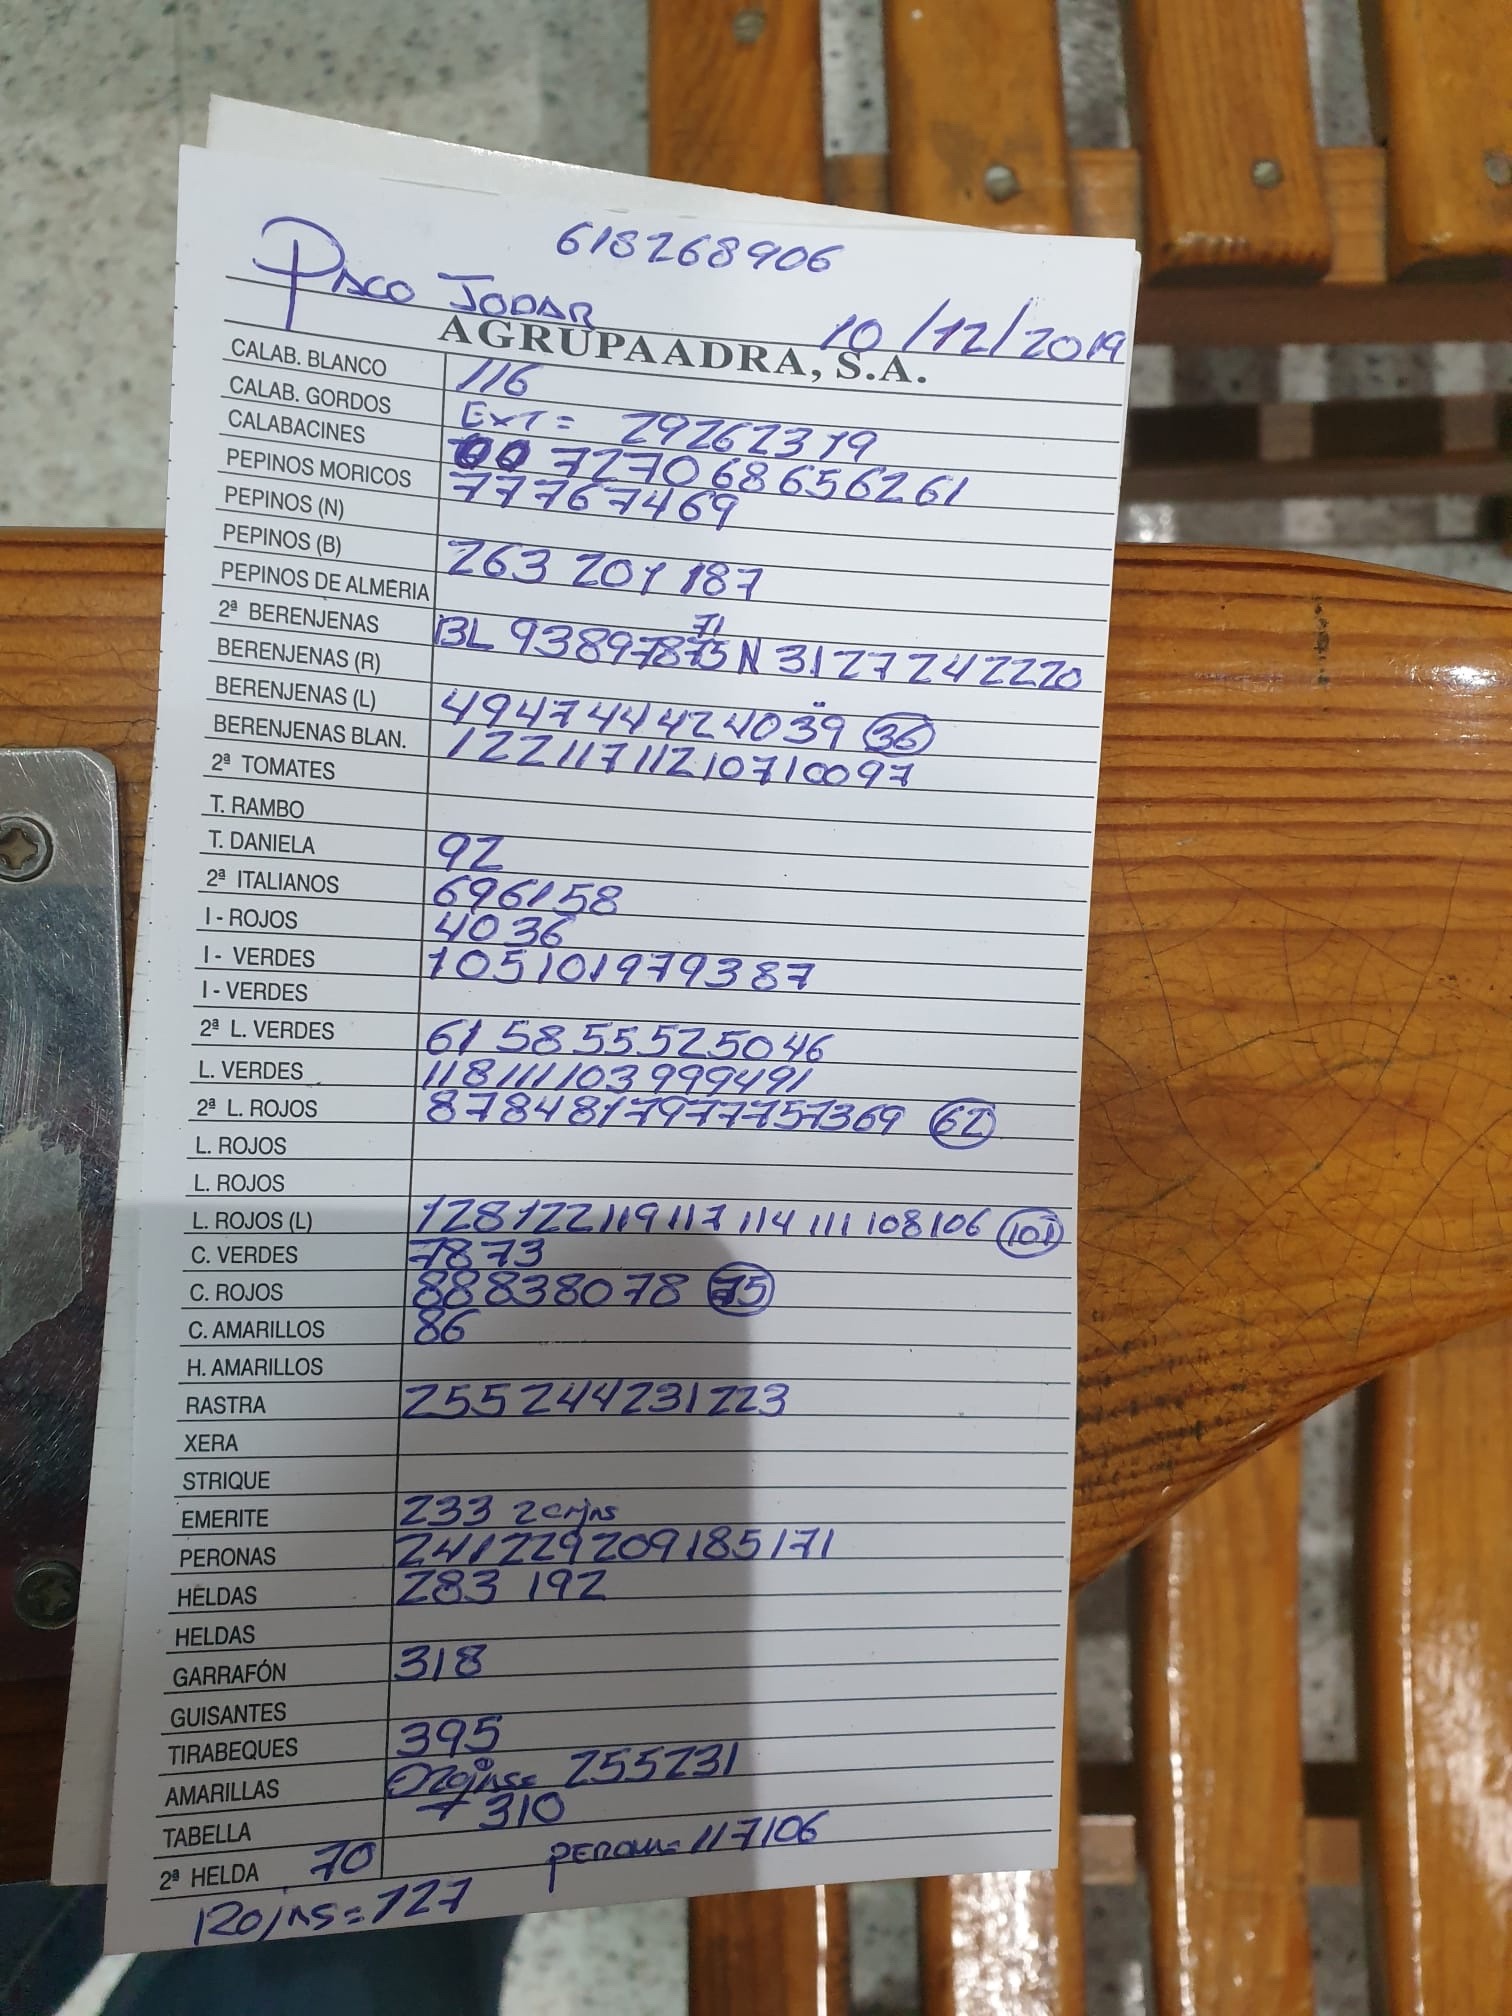 618268906
PACO JODAR
10/12/2019
AGRUPAADRA, S.A.
CALAB. BLANCO 116
CALAB. GORDOS EXT= 29262319
CALABACINES 727068656261
PEPINOS MORICOS 77767469
PEPINOS (N)
PEPINOS (B) 263 201 187
PEPINOS DE ALMERIA
71
2ª BERENJENAS BL 93897875 N 3127242220
BERENJENAS (R)
BERENJENAS (L) 494744424039 36
BERENJENAS BLAN. 12211711210710097
2ª TOMATES
T. RAMBO
T. DANIELA 92
2ª ITALIANOS 696158
I - ROJOS 4036
I - VERDES 105101979387
I - VERDES
2ª L. VERDES 615855525046
L. VERDES 118111103999491
2ª L. ROJOS 8784817977757369 62
L. ROJOS
L. ROJOS
L. ROJOS (L) 128122119117 114 111 108106 101
C. VERDES 7873
C. ROJOS 88838078 75
C. AMARILLOS 86
H. AMARILLOS
RASTRA 255244231223
XERA
STRIQUE
EMERITE 233 2 cajas
PERONAS 241229209185171
HELDAS 283 192
HELDAS
GARRAFÓN 318
GUISANTES
TIRABEQUES 395
AMARILLAS 255231
TABELLA 310
2ª HELDA 70 PERONA= 117106
ROJAS=127